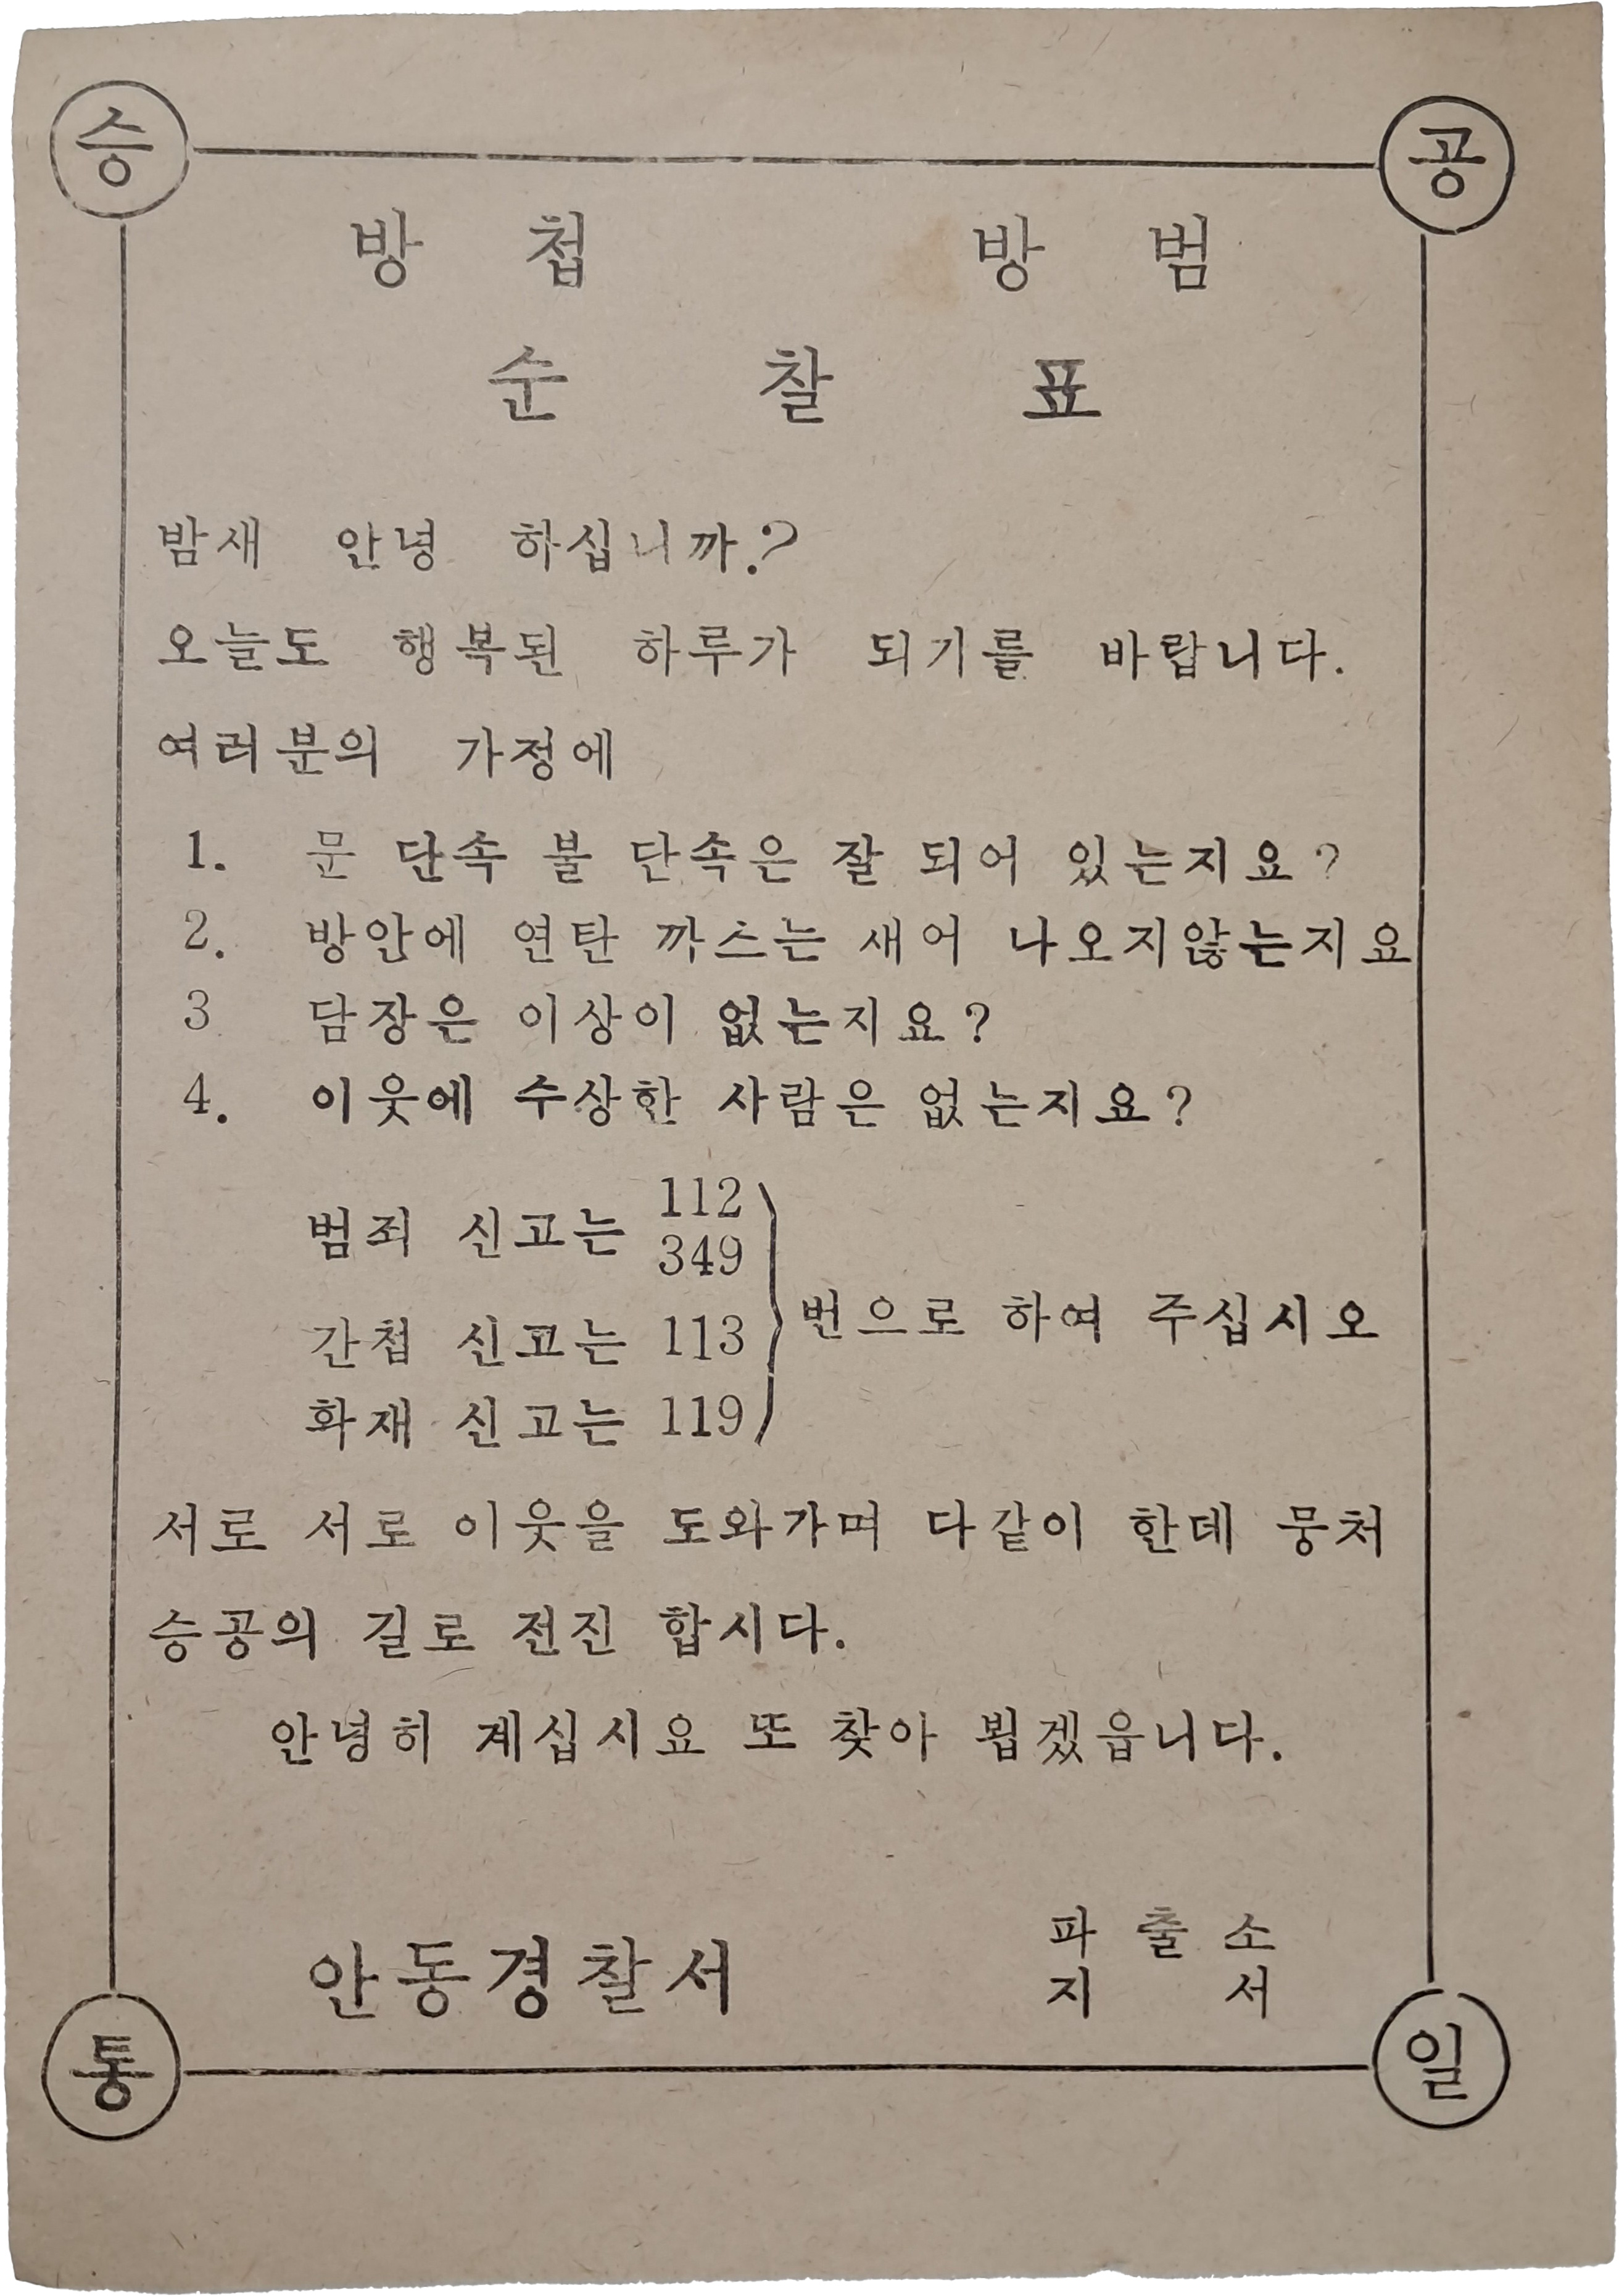 승 공
방 첩 방 범
순 찰 표
밤새 안녕 하십니까?
오늘도 행복된 하루가 되기를 바랍니다.
여러분의 가정에
1. 문 단속 불 단속은 잘 되어 있는지요?
2. 방안에 연탄 까스는 새어 나오지않는지요
3 담장은 이상이 없는지요?
4. 이웃에 수상한 사람은 없는지요?
범죄 신고는 112
349
간첩 신고는 113
화재 신고는 119
번으로 하여 주십시오
서로 서로 이웃을 도와가며 다같이 한데 뭉처
승공의 길로 전진 합시다.
안녕히 계십시요 또 찾아 뵙겠읍니다.
안동경찰서
파 출 소
지 서
통 일